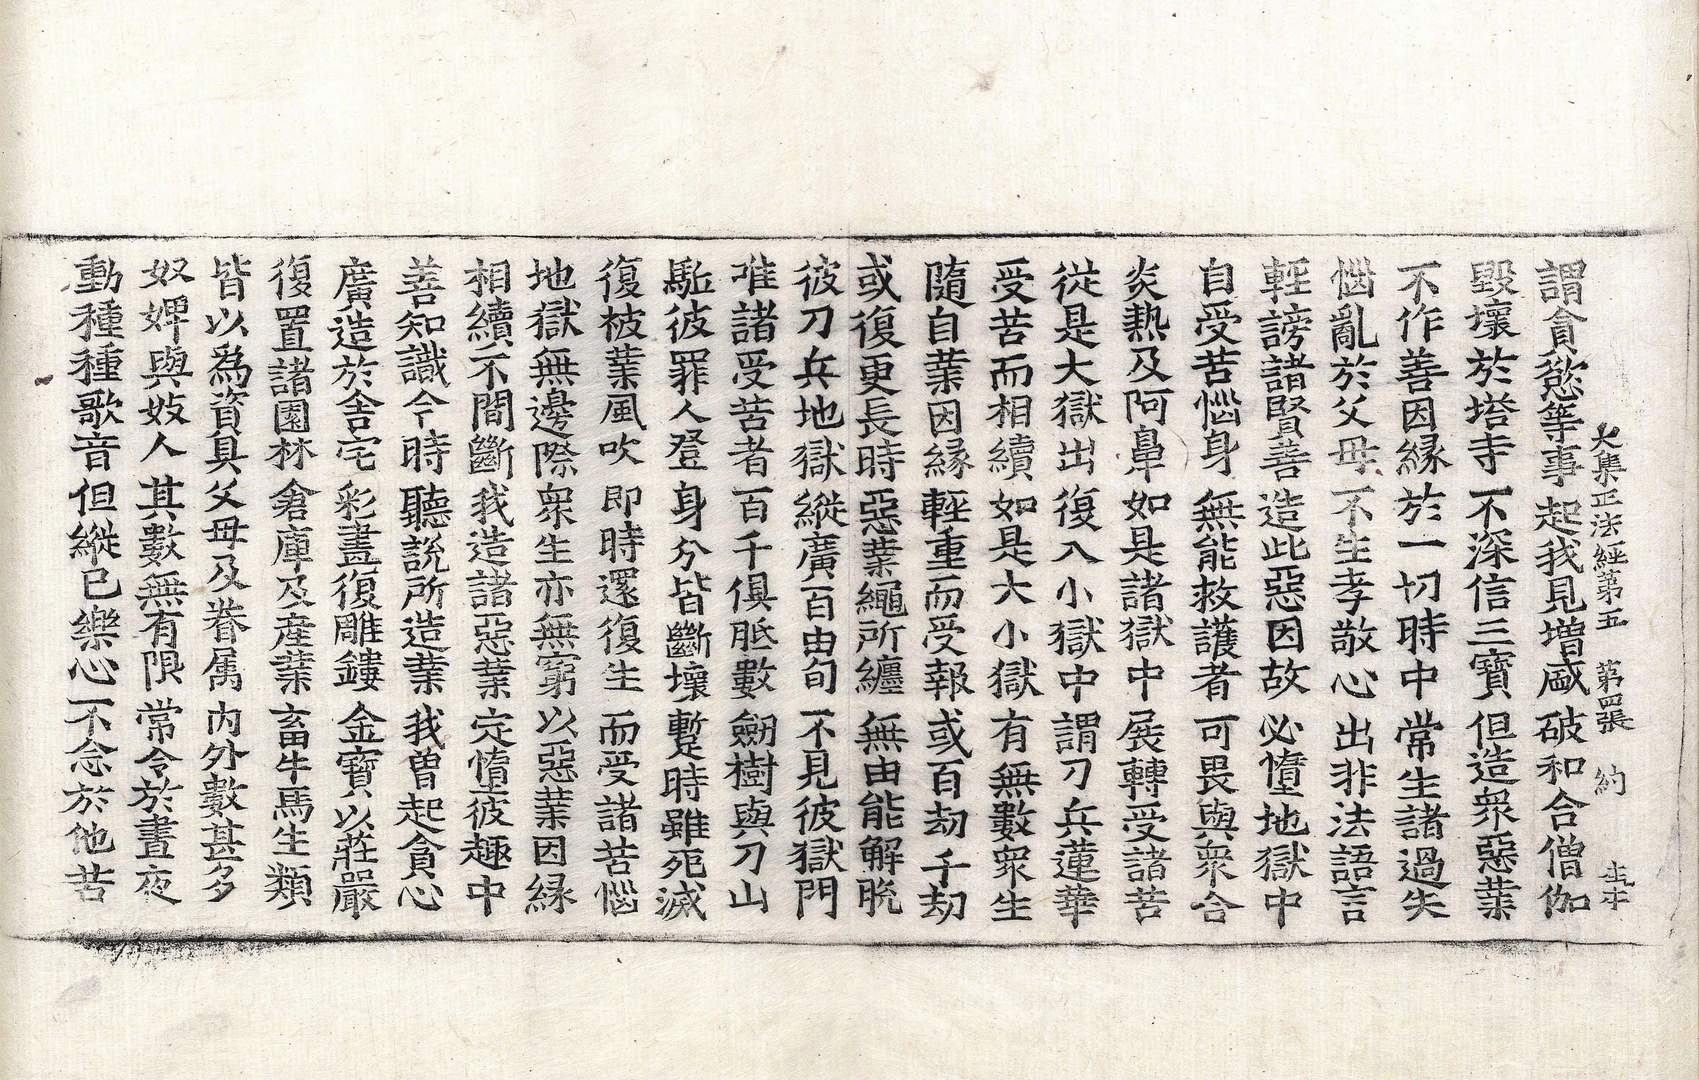 大集正法經第五 第四張 約
謂貪慾等事起我見增盛破和合僧伽
毀壞於塔寺不深信三寶但造衆惡業
不作善因縁於一切時中常生諸過失
惱亂於父母不生孝敬心出非法語言
輕謗諸賢善造此惡因故必墮地獄中
自受苦惱身無能救護者可畏與衆合
炎熱及阿鼻如是諸獄中展轉受諸苦
從是大獄出復入小獄中謂刀兵蓮華
受苦而相續如是大小獄有無數衆生
隨自業因縁輕重而受報或百劫千劫
或復更長時惡業繩所纏無由能解脫
彼刀兵地獄縱廣百由旬不見彼獄門
唯諸受苦者百千俱胝數劒樹與刀山
駈彼罪人登身分皆斷壞蹔時雖死滅
復被業風吹即時還復生而受諸苦惱
地獄無邊際衆生亦無窮以惡業因縁
相續不間斷我造諸惡業定墮彼趣中
善知識今時聽說所造業我曾起貪心
廣造於舍宅彩畫復雕鏤金寶以莊嚴
復置諸園林倉庫及産業畜牛馬生類
皆以為資具父母及眷属内外數甚多
奴婢與妓人其數無有限常令於晝夜
動種種歌音但縱已樂心不念於他苦